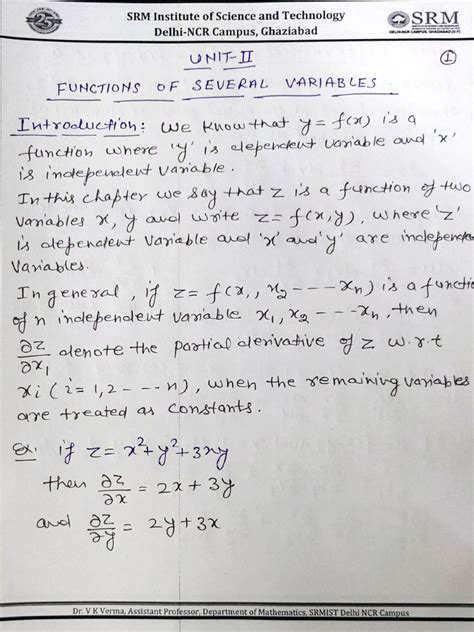 SRM Institute of Science and Technology
Delhi-NCR Campus, Ghaziabad
25
SRM
UNIT-II
①
FUNCTIONS OF SEVERAL VARIABLES
Introduction: We know that y = f(x) is a
function where 'y' is dependent variable and 'x'
is independent variable.
In this chapter we say that z is a function of two
variables x, y and write z = f(x,y), where 'z'
is dependent variable and 'x' and 'y' are independen
variables.
In general, if z = f(x₁, x₂ --- xₙ) is a functio
of n independent variable x₁, x₂ - --- xₙ, then
∂z/∂x₁ denote the partial derivative of z w.r.t
xi (i = 1,2 - -- n), when the remaining variables
are treated as constants.
Ex. if z = x² + y² + 3xy
then ∂z/∂x = 2x + 3y
and ∂z/∂y = 2y + 3x
Dr. V K Verma, Assistant Professor, Department of Mathematics, SRMIST Delhi NCR Campus